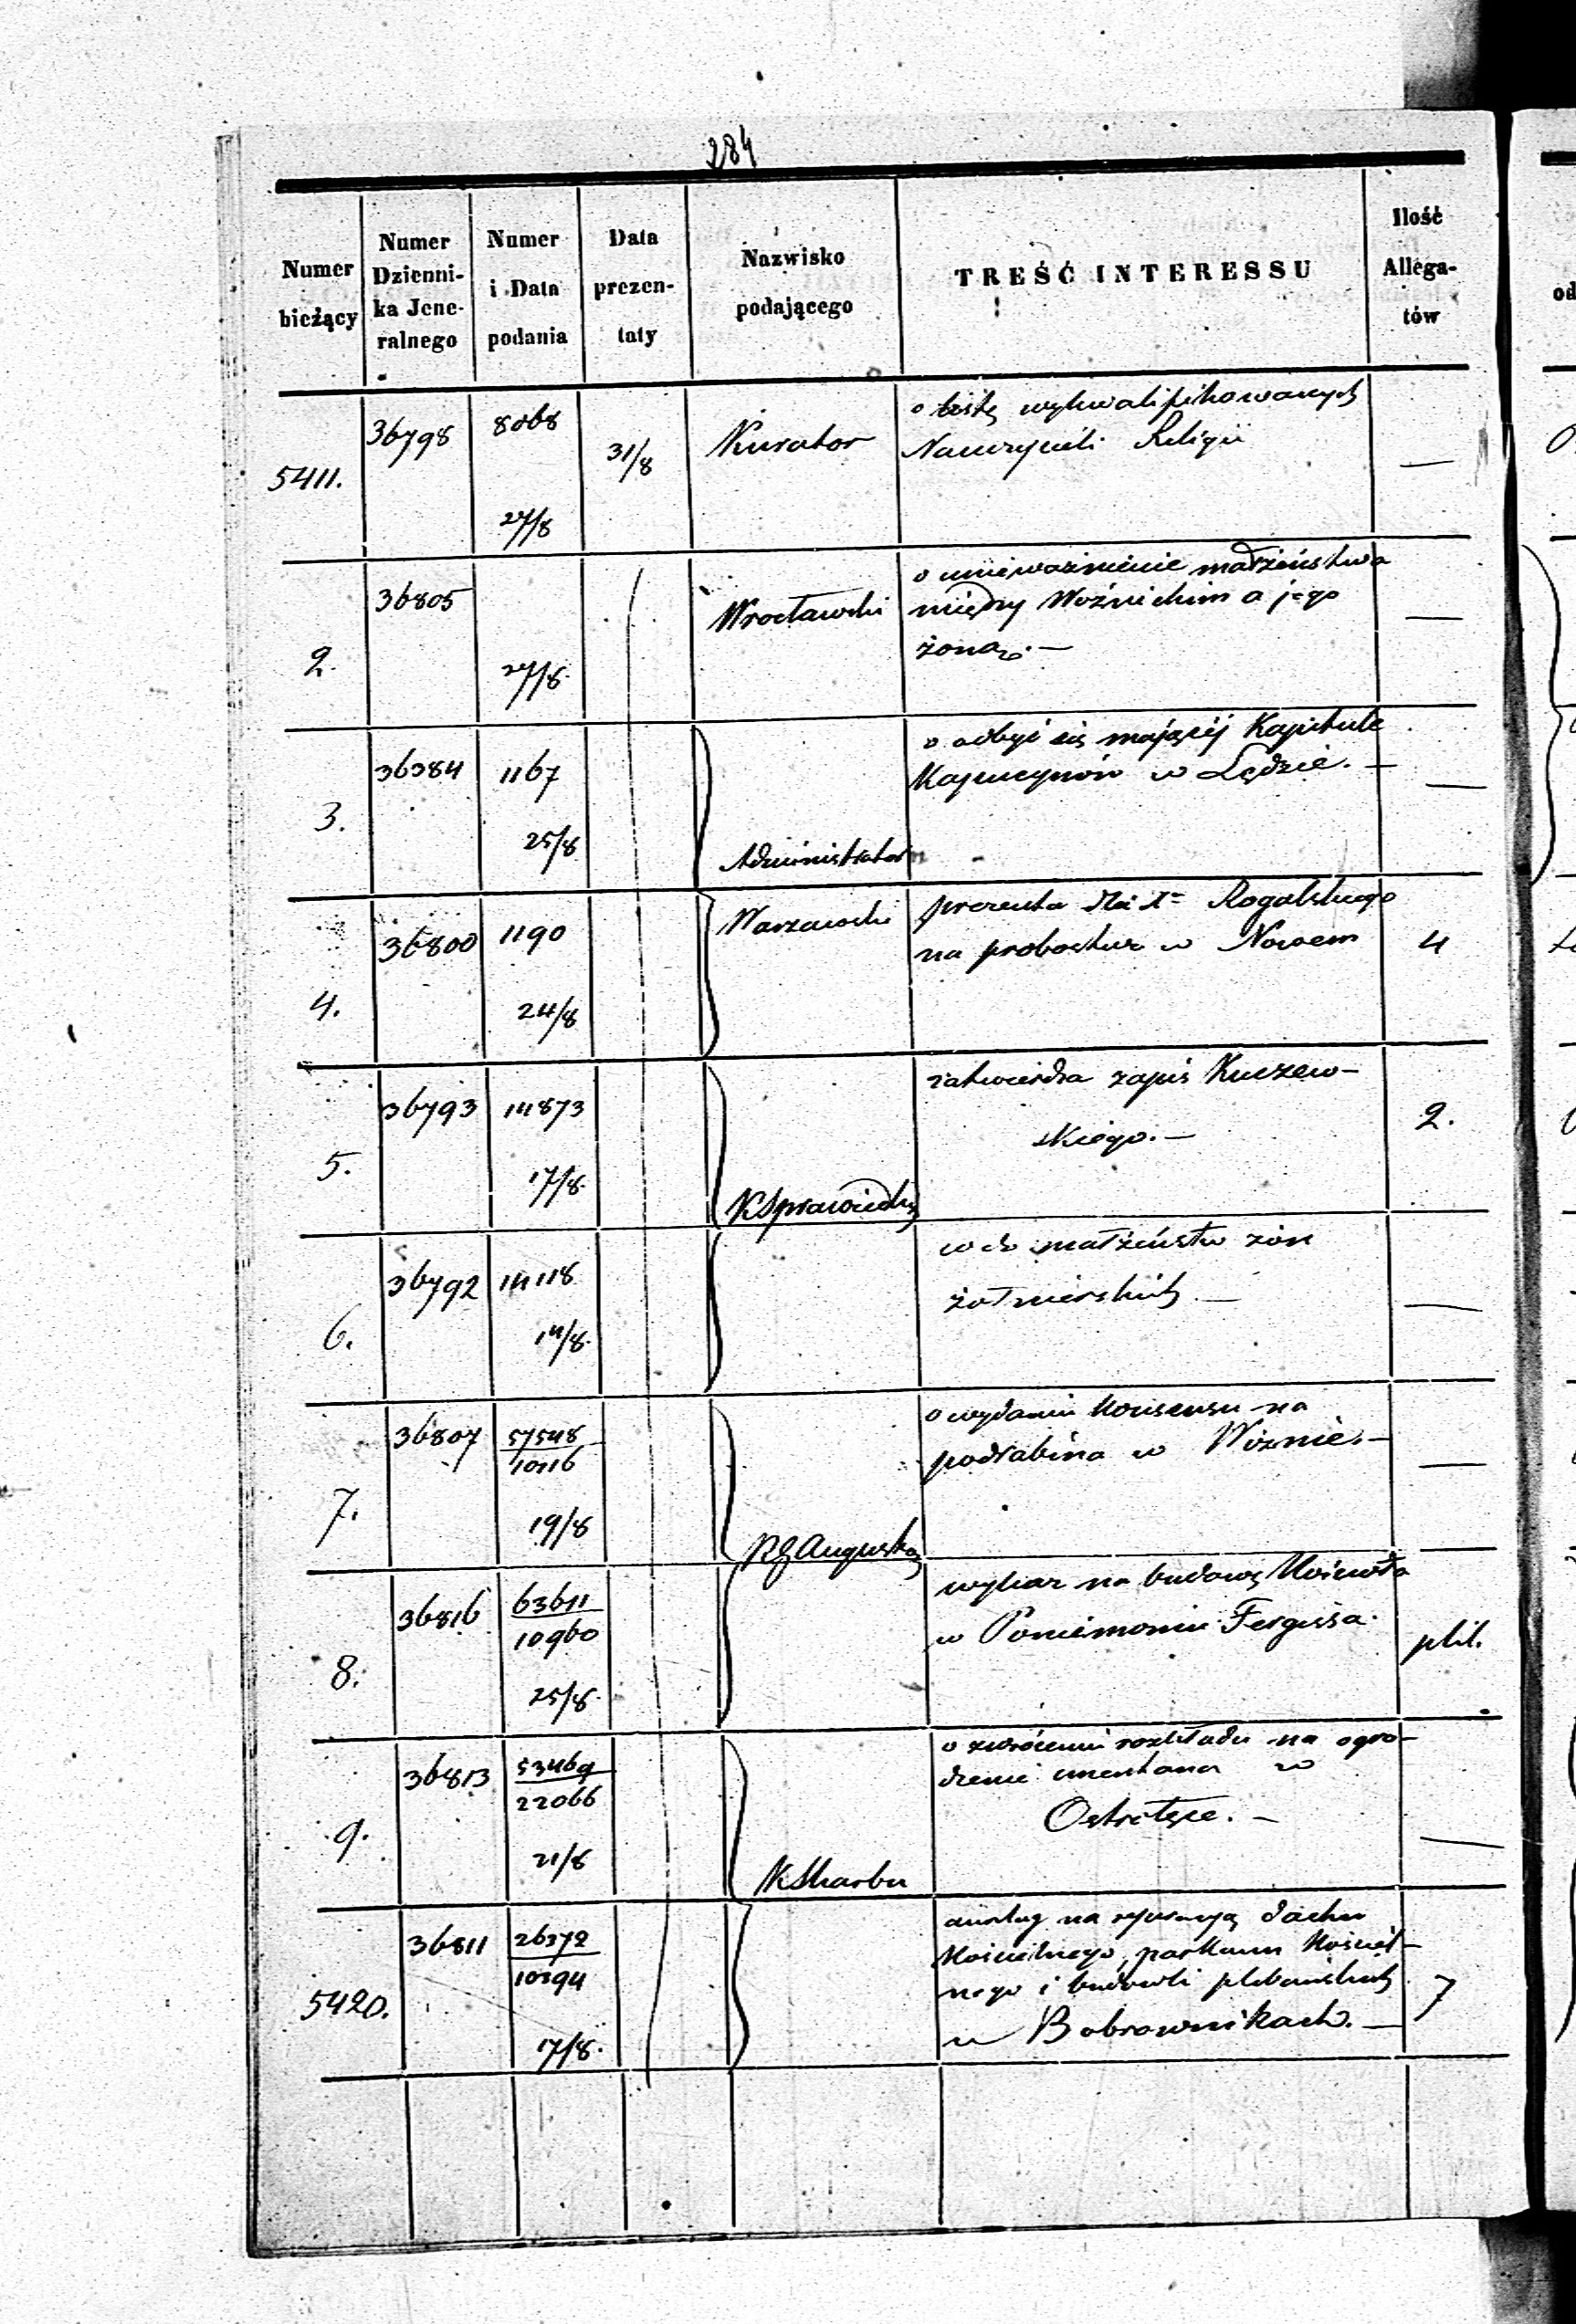 284
Numer bieżący
Numer Dzienni-ka Jene-ralnego
Numer i Data podania
Data prezen-taty
Nazwisko podającego
TREŚĆ INTERESSU
Ilość Allega-tów
5411.
36798
8068
27/8
31/8
Kurator
o listę wykwalifikowanych
Nauczycieli Religii
—
2.
36805
27/8
Wrocławski
o unieważnienie małżeństwa
między Woźnickim a jego
żoną.—
—
3.
36384
1167
25/8
Administrator
o odbyć się mającej Kapitule
Kapucynów w Lędzie.—
—
4.
36800
1190
24/8
Warzawski
prezenta dla X Rogalskiego
na probostwo w Nowem
4
5.
36793
14873
17/8
K Sprawiedli
zatwierdza zapis Kuczew-
skiego.—
2.
6.
36792
14118
14/8
małżeństw żon
żołnierskich —
—
7.
36807
57548
10116
19/8
RG Augustow
o wydaniu konsensu na
podrabina w Wiznie.—
—
8.
36816
63611
10960
25/8
wykaz na budowę Kościoła
w Poniemoniu Fergissa.
plik.
9.
36813
53469
22066
21/8
K Skarbu
o zwróceniu rozkładu na ogro-
dzenie cmentarza w
Ostrołęce.—
—
5420.
36811
26372
10294
17/8.
anszlag na reperacyą dachu
Kościelnego, parkanu Kościel-
nego i budowli plebańskich
w Bobrownikach.—
7